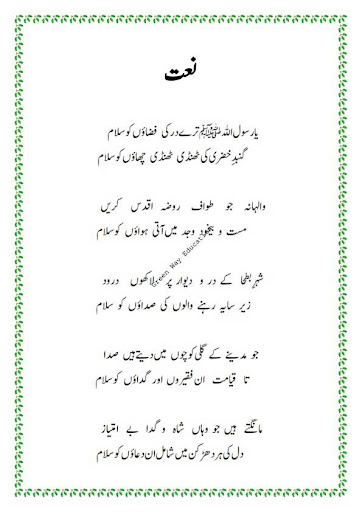 نعت
یا رسول اللہ ﷺ ترے در کی فضاؤں کو سلام
گنبدِ خضریٰ کی ٹھنڈی ٹھنڈی چھاؤں کو سلام
والہانہ جو طواف روضہ اقدس کریں
مست و بیخود وجد میں آتی ہواؤں کو سلام
شہرِ بطحا کے در و دیوار پر لاکھوں درود
زیر سایہ رہنے والوں کی صداؤں کو سلام
جو مدینے کے گلی کوچوں میں دیتے ہیں صدا
تا قیامت ان فقیروں اور گداؤں کو سلام
مانگتے ہیں جو وہاں شاہ و گدا بے امتیاز
دل کی ہر دھڑکن میں شامل ان دعاؤں کو سلام